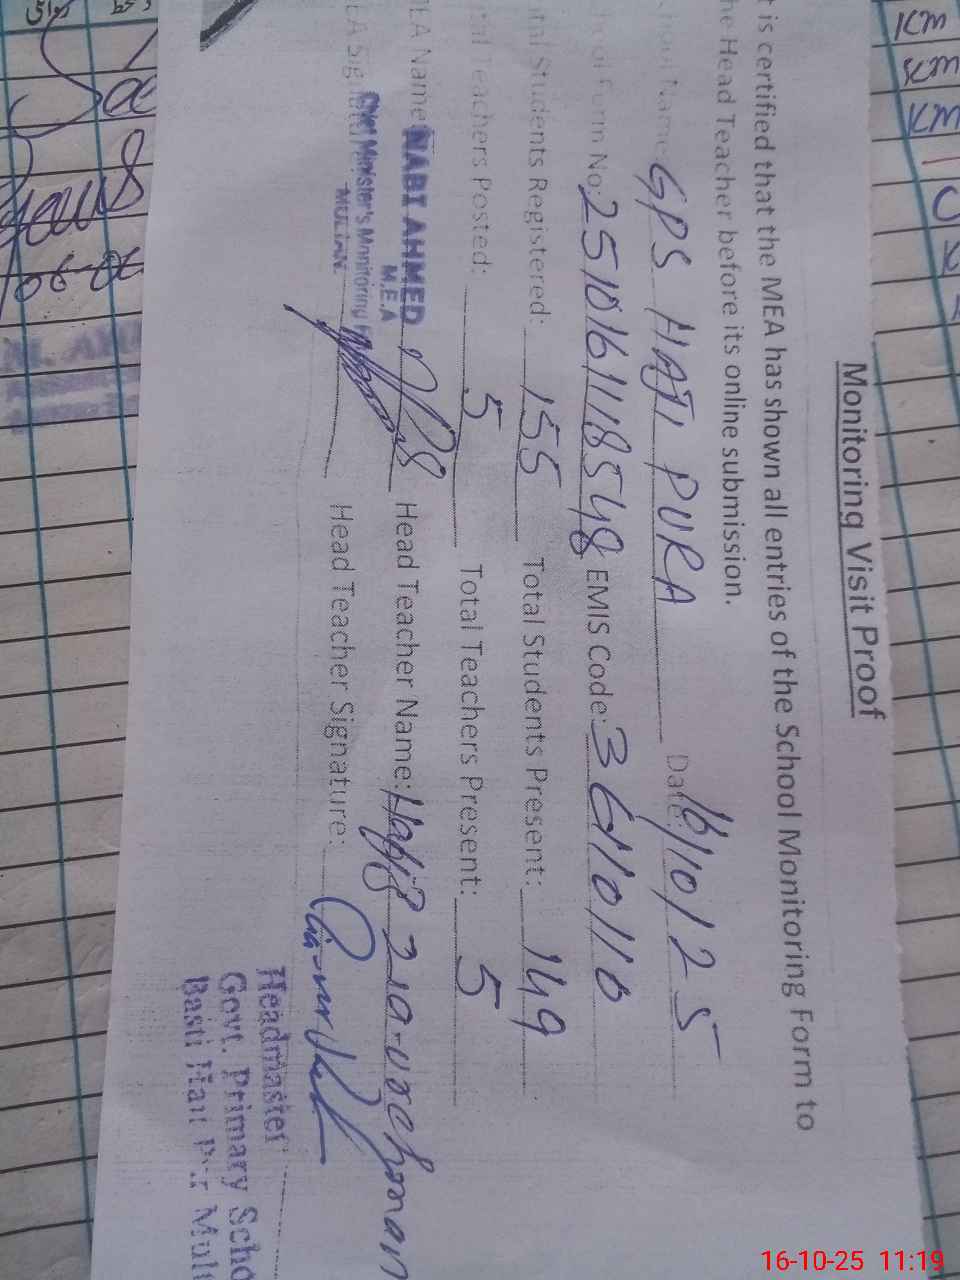 Monitoring Visit Proof
t is certified that the MEA has shown all entries of the School Monitoring Form to
he Head Teacher before its online submission.
School Name: GPS HAJI PURA Date: 16/10/25
School Form No: 2510161118548 EMIS Code: 36110110
Total Students Registered: 155 Total Students Present: 149
Total Teachers Posted: 5 Total Teachers Present: 5
MEA Name NABI AHMED Head Teacher Name: Hafiz Zia-ur-rehman
M.E.A
Chief Minister's Monitoring
MULTAN.
Head Teacher Signature:
Headmaster
Govt. Primary Scho
Basti Mult
KM
KM
KM
16-10-25 11:19